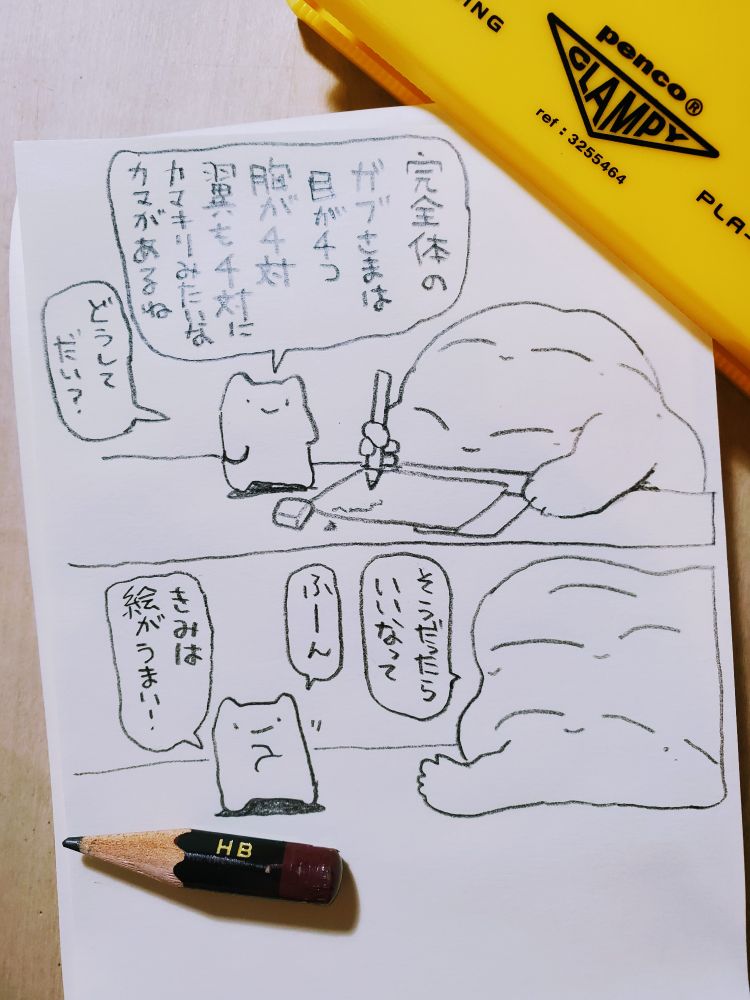 完全体の
ガブさまは
目が4つ
胸が4対
翼も4対に
カマキリみたいな
カマがあるね
どうして
だい？
そうだったら
いいなって
ふーん
きみは
絵がうまい！
HB
penco®
CLAMPY
ref : 3255464